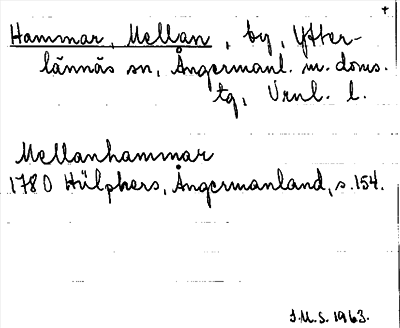 +
Hammar, Mellan, by, Ytter-
lännäs sn, Ångermanl. m. doms.
tg, Vrnl. l.
Mellanhammar
1780 Hülphers, Ångermanland, s. 154.
J.M.S. 1963.